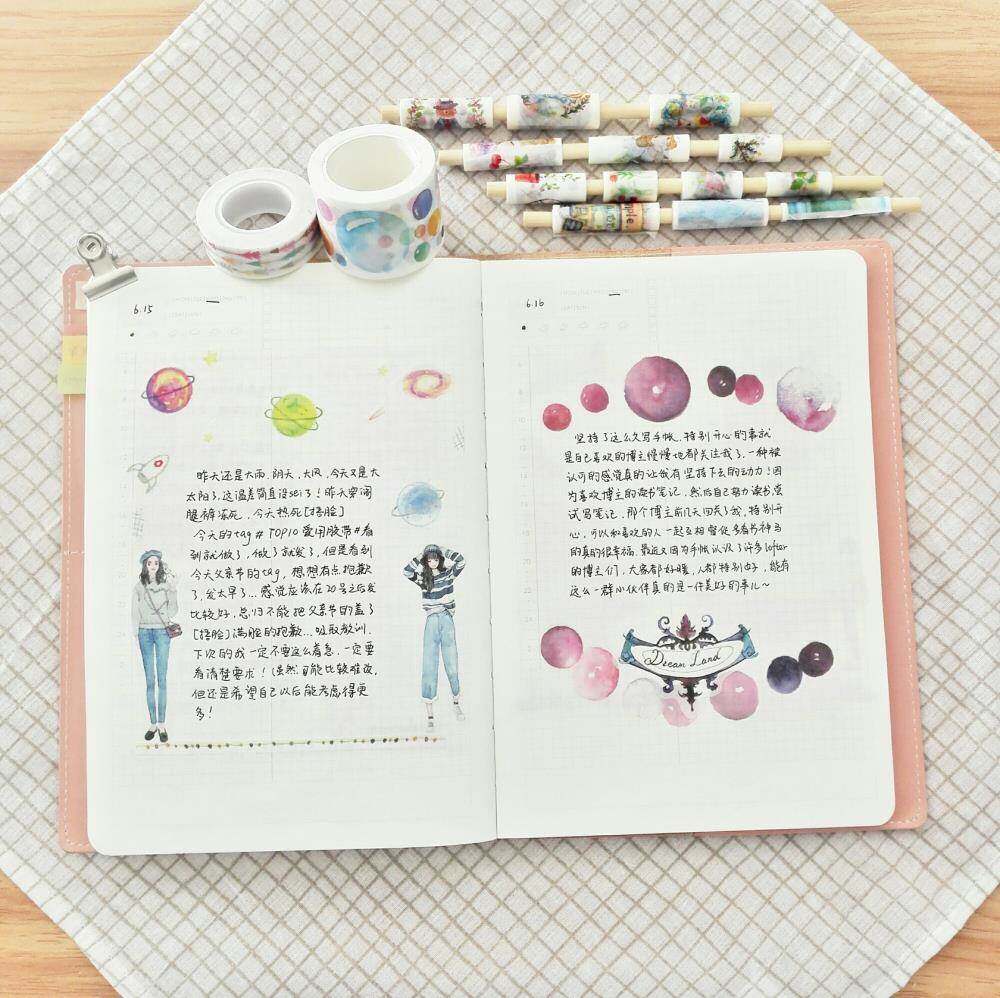 6.15
昨天还是大雨、阴天、大风、今天又是大
太阳了,这温差简直没sei了!昨天穿阔
腿裤冻死,今天热死[捂脸]
今天的tag#TOP10爱用胶带#看
到就做了,做了就发了,但是看到
今天父亲节的tag,想想有点抱歉
了,发太早了...感觉应该在20号之后发
比较好,总归不能把父亲节的盖了
[捂脸]满脸的抱歉...吸取教训.
下次的我一定不要这么着急,一定要
看清楚要求!(虽然)可能比较难改,
但还是希望自己以后能考虑得更
多!
6.16
坚持了这么久写手帐,特别开心的事就
是自己喜欢的博主慢慢地都关注我了,一种被
认可的感觉真的让我有坚持下去的动力!因
为喜欢博主的读书笔记,然后自己努力读书,尝
试写笔记,那个博主前几天回关了我,特别开
心,可以和喜欢的人一起互相督促多看书神马
的真的很幸福.最近又因为手帐认识了许多lofter
的博主们,大家都好暖,人都特别好,能有
这么一群小伙伴真的是一件美好的事儿~
Dream Land